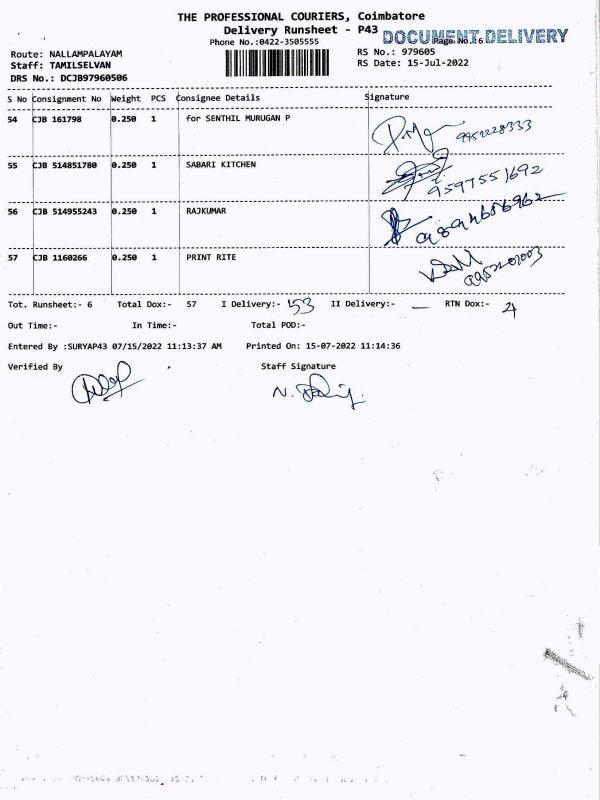 THE PROFESSIONAL COURIERS, Coimbatore
Delivery Runsheet - P43
DOCUMENT DELIVERY
Page No.:6
Phone No.:0422-3505555
Route: NALLAMPALAYAM
RS No.: 979605
Staff: TAMILSELVAN
RS Date: 15-Jul-2022
DRS No.: DCJB97960506
S No Consignment No Weight PCS Consignee Details Signature
54 CJB 161798 0.250 1 for SENTHIL MURUGAN P
55 CJB 514851780 0.250 1 SABARI KITCHEN 9597551692
56 CJB 514955243 0.250 1 RAJKUMAR
57 CJB 1160266 0.250 1 PRINT RITE
Tot. Runsheet:- 6 Total Dox:- 57 I Delivery:- 53 II Delivery:- — RTN Dox:- 4
Out Time:- In Time:- Total POD:-
Entered By :SURYAP43 07/15/2022 11:13:37 AM Printed On: 15-07-2022 11:14:36
Verified By Staff Signature